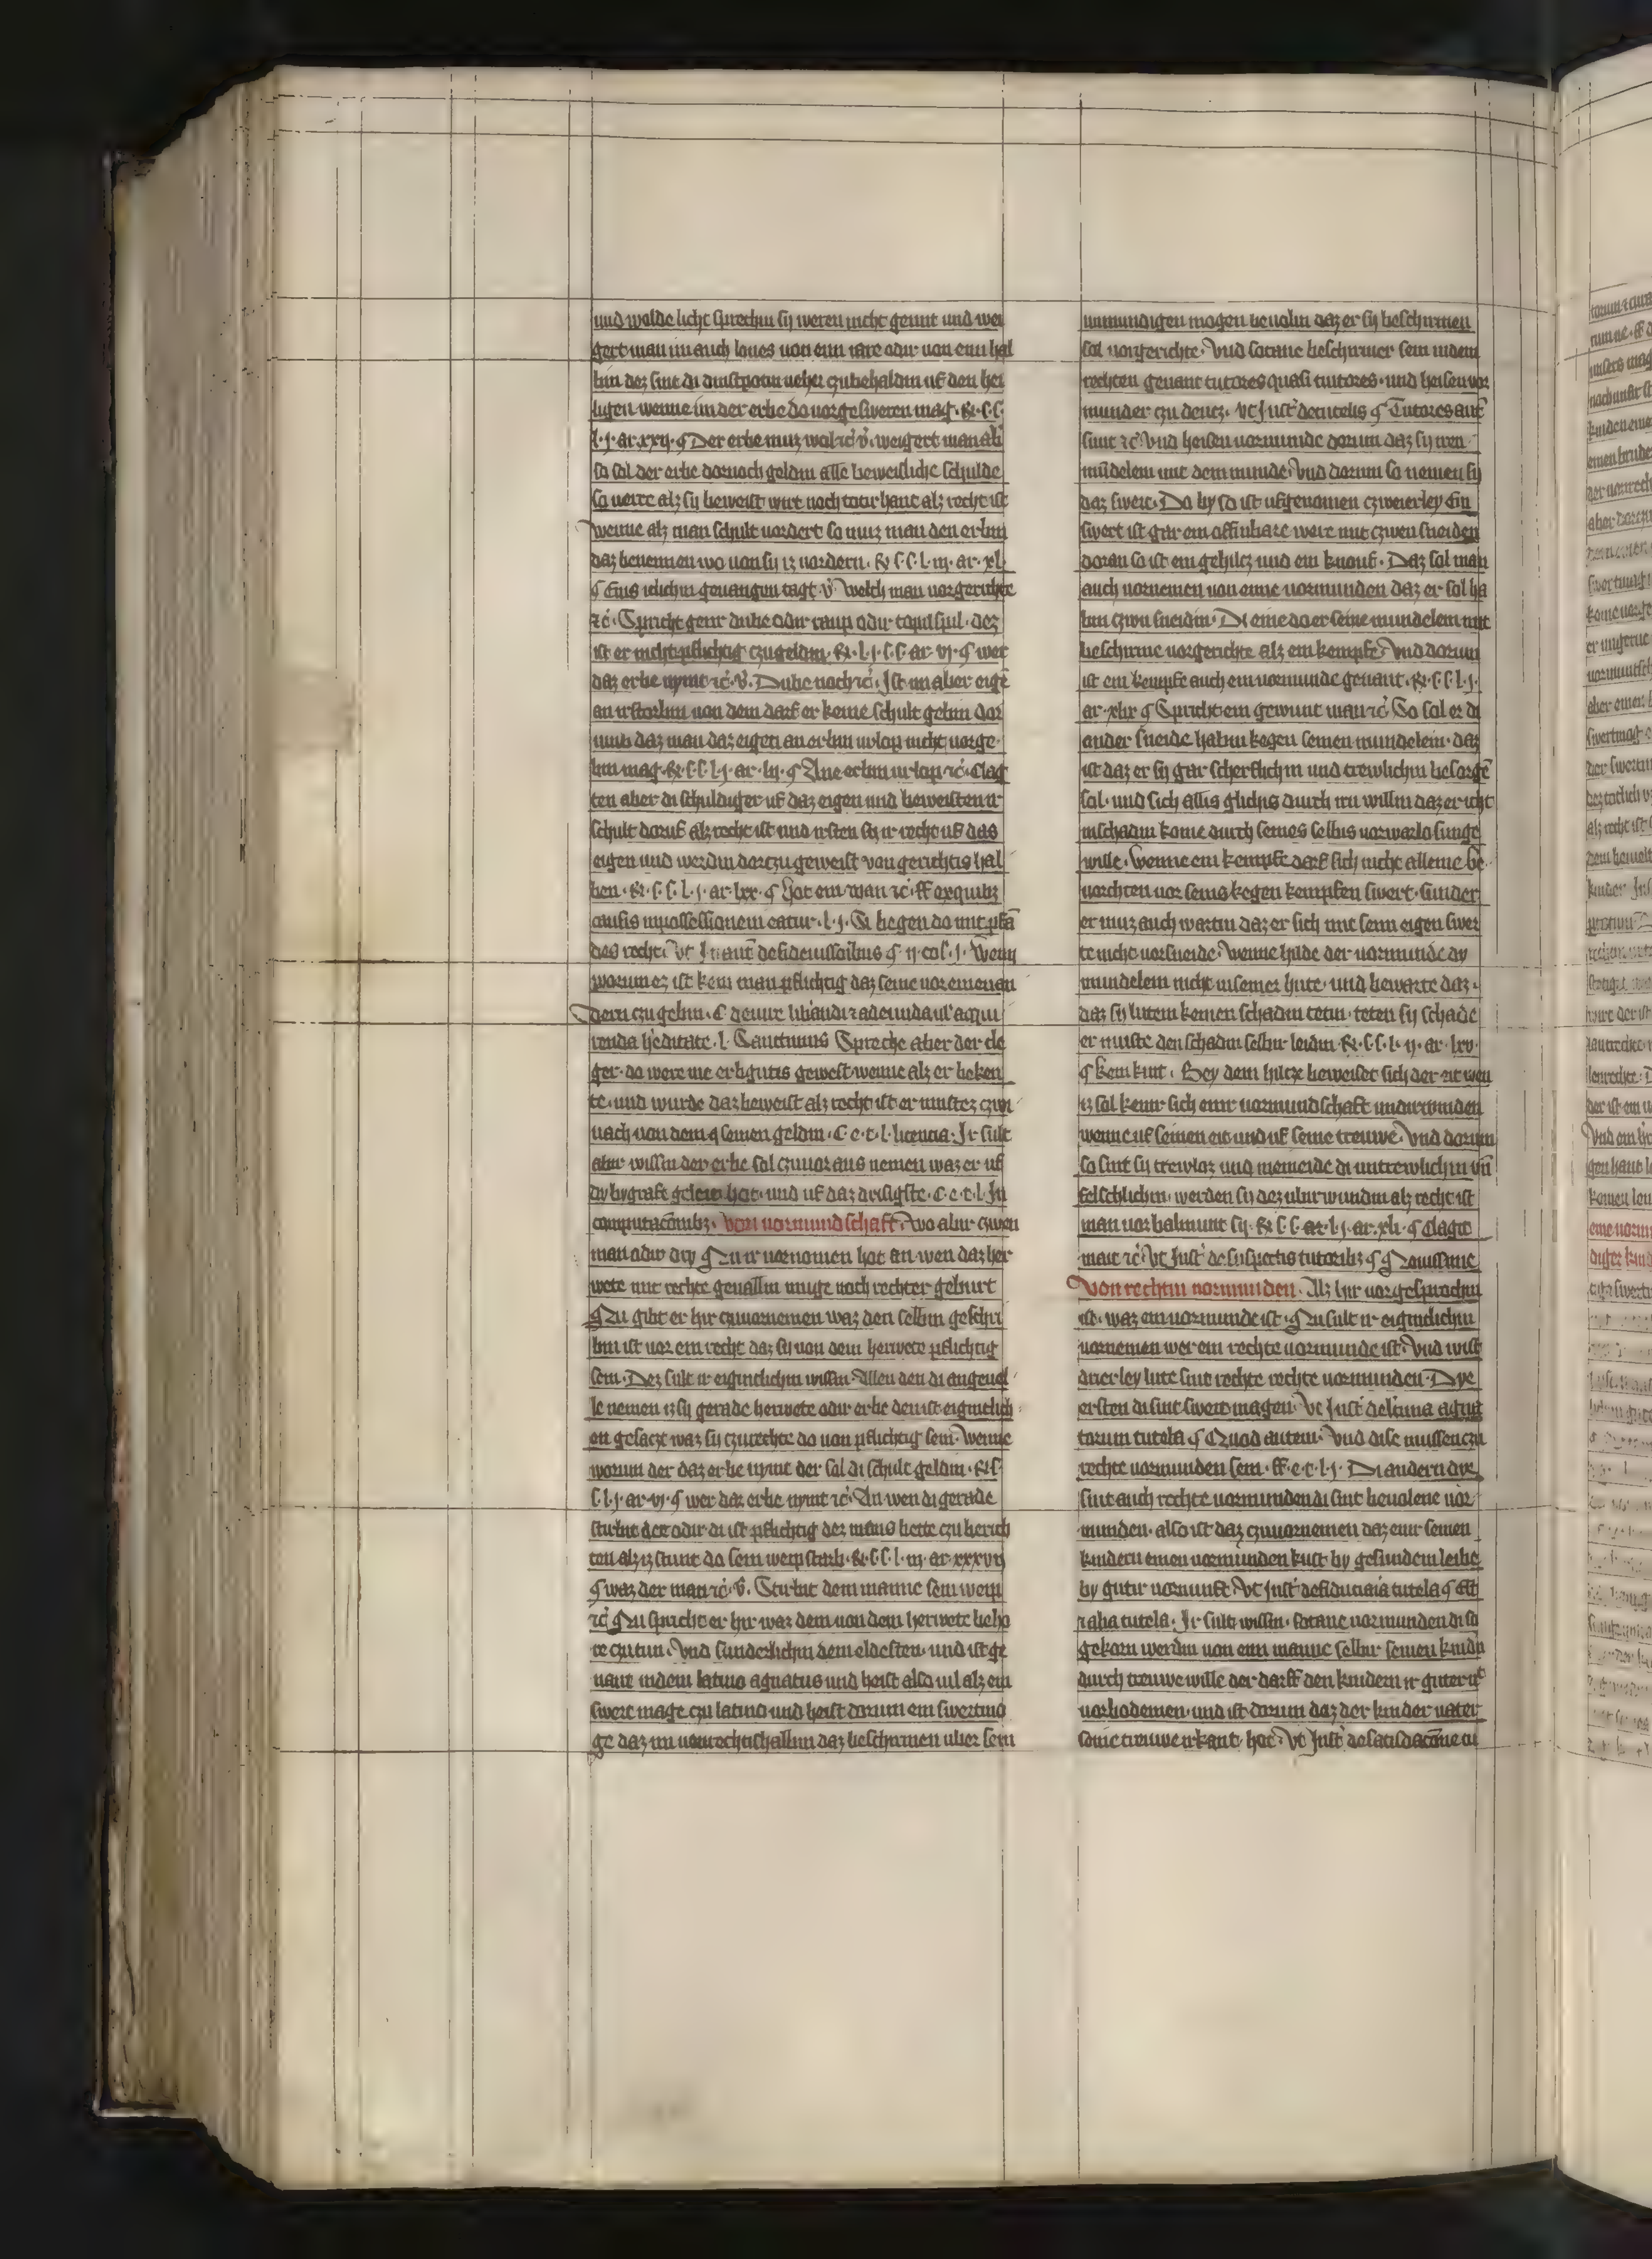 und wolde licht sprechin sy weren nicht genut und wei
gert man im auch lones von eim iare odir von eim hal
bin dez sint di dinstpotin neher czubehaldin uf den hei
ligen wenne im der erbe do vorgesweren mag. R. s. s.
l. j. ar. xxij. ¶ Der erbe muz wol ⁊c̄ v̄. weigert man ab̄
so sol der erbe dornoch geldin alle beweisliche schulde
so verre alz sy beweist wirt noch toter hant alz recht ist
wenne alz man schult vordert so muz man den erbin
daz benennen wo von sy iz vordern. R. s. s. l. iij. ar. xl.
¶ Eins iclichin gevangin tagt. v̄. Welch man vorgerichte
⁊c̄. Spricht genr dube odir raup odir topilspil. dez
ist er nicht pflichtig czugeldin. R. l. j. s. s. ar. vj. ¶ wer
daz erbe nymt ⁊c̄. v̄. Dube noch ⁊c̄. Ist im aber eigē
an irstorbin von dem darf er keine schult gebin dor
umb daz man daz eigen an erbin urlop nicht vorge
bin mag. R. s. s. l. j. ar. lij. ¶ Ane erbin urlop ⁊c̄. Clag
ten aber di schuldiger uf daz eigen und beweisten ir
schult doruf alz recht ist und irsten sy ir recht uf das
eigen und werdin dorczu geweist von gerichtis hal
ben. R. s. s. l. j. ar. lxx. ¶ Hot ein man ⁊c̄. ff ex quibz
causis in possessionem eatur. l. j. Si begen do mit pfā
des recht. vt In aut̄ de fideiussoribus ¶ ij col. j. Wenn
worum ez ist kein man pflichtig daz seine vor einen an
dern czu gebin. C de iure libandi ⁊ adeunda ul̄ aqui
renda h̄editate. l. Sanctimus Spreche aber der cle
ger. do were me erbgutis gewest wenne alz er beken
te. und wurde daz beweist alz recht ist er mustez czwi
nach von dem seinen geldin. C. e. t. l. licencia. Ir sult
abir wissin der erbe sol czuvor aus nemen waz er uf
dy bygraft geleit hot. und uf daz drisigste. C. e. t. l. In
computacōnibz. Von vormundschaft. Wo abir czwen
man odir dry ¶ Nu ir vornomen hot an wen daz her
wete mit rechte gevallin muge noch rechter geburt
¶ Nu gibt er hir czuvornemen waz den selbin geschri
bin ist vor ein recht daz sy von dem herwete pflichtig
sein. Dez sult ir eigintlichin wissin. Allen den di angevel
le nemen iz sy gerade herwete odir erbe den ist eigintlich
en gesacz waz sy czurechte do von pflichtig sein. Wenne
worum der daz erbe nymt der sol di schult geldin. R. s.
s. l. j. ar. vj. ¶ wer daz erbe nymt ⁊c̄. An wen di gerade
stirbit der odir di ist pflichtig dez mans bette czu berich
ten alz iz stunt do sein weip starb. R. s. s. l. iij. ar. xxxviij
¶ waz der man ⁊c̄. v̄. Stirbit dem manne sein weip
⁊c̄ Nu spricht er hir waz dem von dem herwete beho
re czutun. Und sunderlichin dem eldesten. und ist ge
nant in dem latino agnatus und heist also vil alz ein
swert mage czu latino und heist dorum ein swertma
ge daz im von rechtis hallin daz beschirmen ubir sein
unmundigen mogen bevolin daz er sy beschirmen
sol vorgerichte. Und sotane beschirmer sein in dem
rechten genant tutores quasi tuitores. und heisen vor
munder czu deucz. vt Just̄ de tutelis ¶ Tutores aut̄
sunt ⁊c̄. Und heisen vormunde dorum daz sy iren
mūdelein mit dem munde. Und dorum so nemen sy
daz swert. Do by so ist ufgenomen czweierley Ein
swert ist gar ein offinbare were mit czwen sneiden
doran so ist ein gehilcz und ein knouf. Daz sol man
auch vornemen von eime vormunden daz er sol ha
bin czwu sneidin. Di eine do er seine mundelein mit
beschirme vorgerichte alz ein kempfe. Und dorum
ist ein kempfe auch ein vormunde genant. R. s. s. l. j.
ar. xlix ¶ Spricht ein gewunt man ⁊c̄. So sol er di
ander sneide habin kegen seinen mundelein. daz
ist daz er sy gar scherflichin und trewlichin besorgē
sol. und sich allis glichis durch irn willin daz er icht
in schadin kome durch seines selbis vorwarlosunge
wille. Wenne ein kempfe darf sich nicht alleine be
vorchten vor seins kegen kempfen swert. sunder
er muz auch wartin daz er sich mit seim eigen swer
te nicht vorsneide. wenne hilde der vormunde dy
mundelein nicht in seiner hute. und bewarte daz.
daz sy lutein keinen schadin tetin. teten sy schade
er muste den schadin selbir leidin. R. s. s. l. ij. ar. lxv.
¶ kein kint. Bey dem hilcze beweiset sich der eit wen
iz sol keinr sich einr vormundschaft undirwinden
wenne uf seinen eit und uf seine treuwe. Und dorum
so sint sy trewloz und meineide di untrewlichin vn̄
felschlichin. werden sy dez ubirwundin alz recht ist
man vorbalmunt sy. R. s. s. ar. l. j. ar. xli. ¶ Clagit
mait ⁊c̄. vt Just̄ de suspectis tutoribz ¶ Novissime
Von rechtin vormunden. Alz hir vorgesprochin
ist. waz ein vormunde ist. Nu sult ir eigintlichin
vornemen wer ein rechte vormunde ist. Und wist
drierley lute sint rechte rechte vormunden. Dye
ersten di sint swertmagen. vt Just̄ de l̄tima agna
torum tutela ¶ Quod autem. Und dise mussen czu
rechte vormunden sein. ff. e. t. l. j. Di andern dye
sint auch rechte vormunden di sint bevolene vor
munden. also ist daz czuvornemen daz einr seinen
kindern einen vormunden kust by gesundem leibe
by gutir vornunft. vt Just̄ de fiduciaria tutela ¶ Est
⁊ alia tutela. Ir sult wissin. sotane vormunden di so
gekorn werdin von eim manne selbir seinen kindn̄
durch treuwe wille der darff den kindern ir guter nt̄
vorbodemen. und ist dorum daz der kinder vater
seine treuwe irkant hot. vt Just̄ de satisdacōne tu